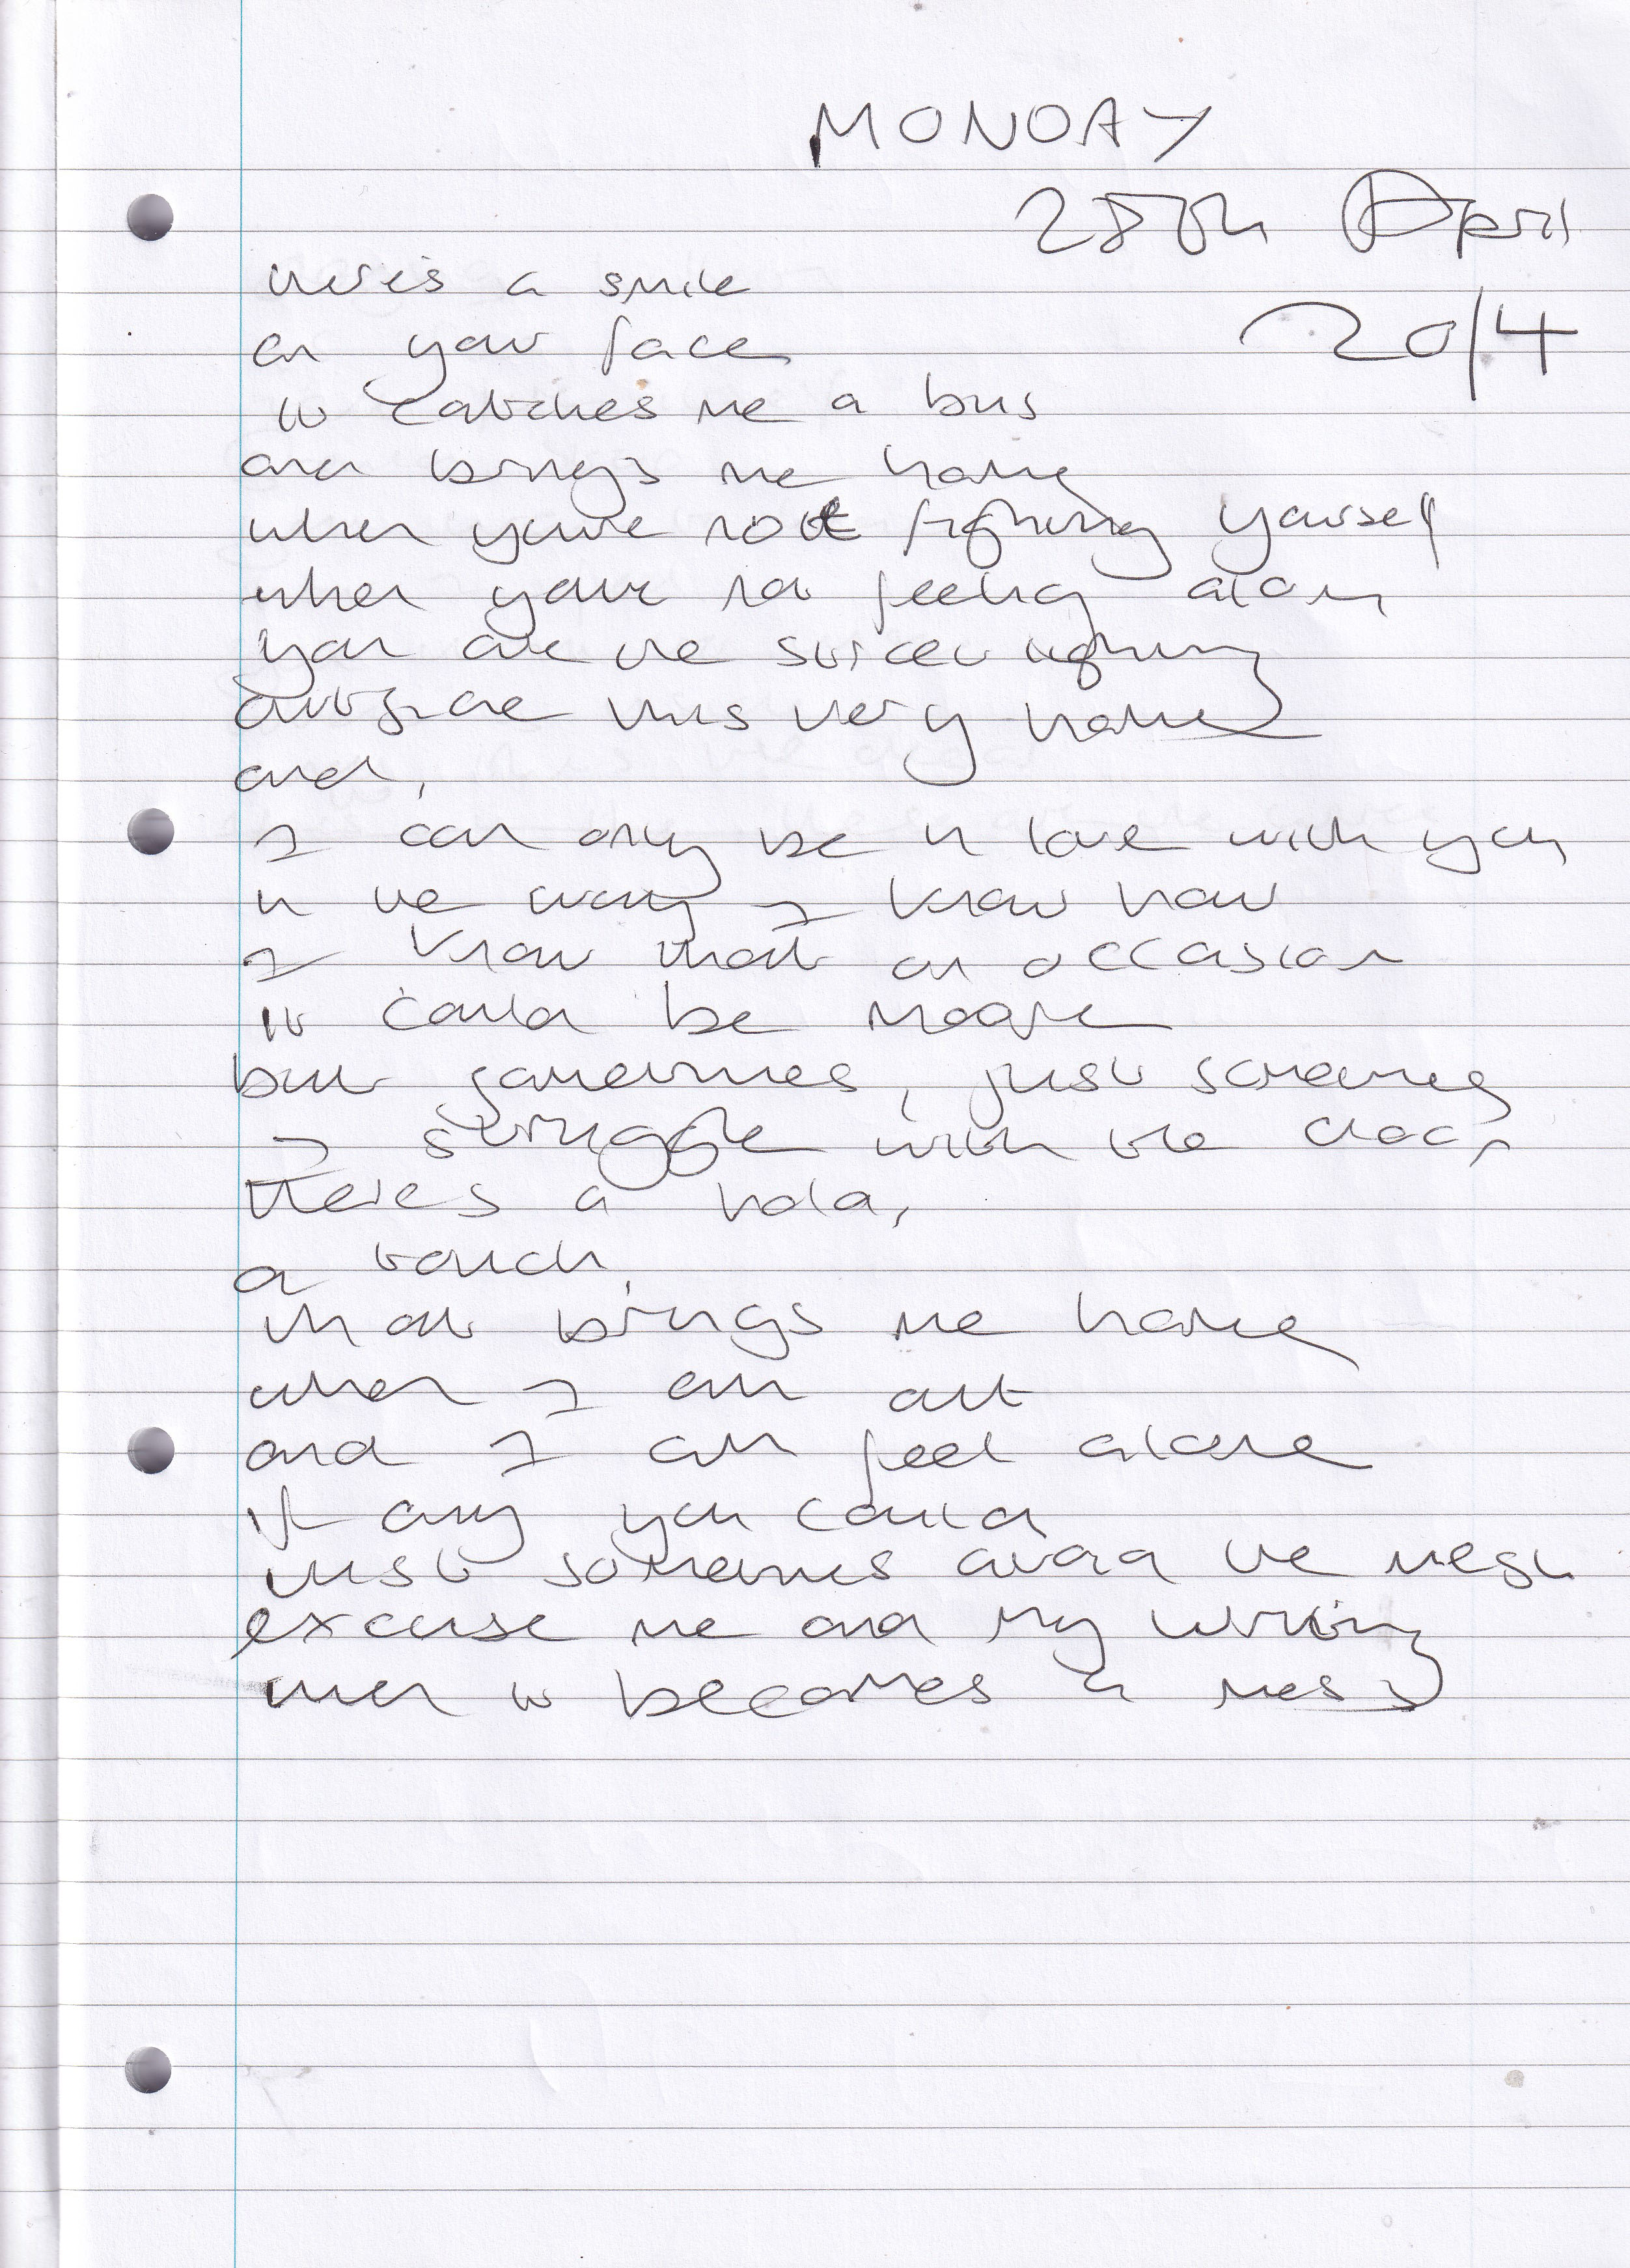 MONDAY
28th April
2014
there's a smile
on your face
it catches me a bus
and brings me home
when you're not fighting yourself
when you're not feeling alone
you are the street lighting
outside this very home
and,
I can only be in love with you
in the way I know how
I know that on occasion
it could be more
but sometimes, just sometimes
I struggle with the
there's a hold,
a touch,
that brings me home
when I am out
and I am feel alone
if only you could
just sometimes avoid the
excuse me and my writing
when it becomes a mess